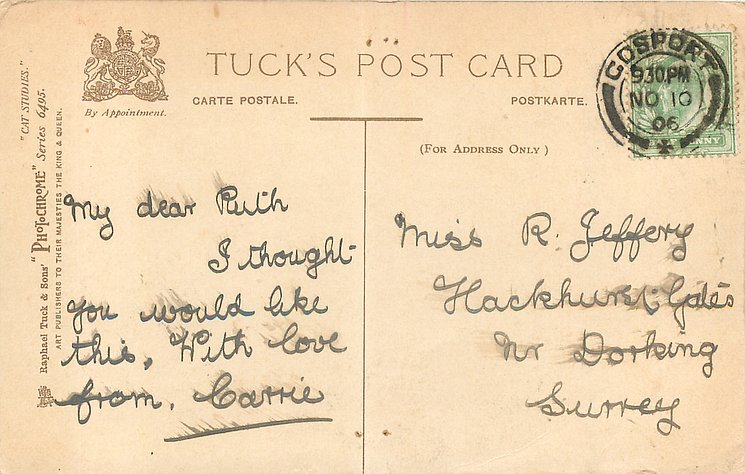 TUCK'S POST CARD
CARTE POSTALE.
POSTKARTE.
By Appointment.
(FOR ADDRESS ONLY)
"CAT STUDIES."
Raphael Tuck & Sons' "PHOTOCHROME" Series 6495.
ART PUBLISHERS TO THEIR MAJESTIES THE KING & QUEEN.
GOSPORT
9 30 PM
NO 10
06
NNY
My dear Ruth
I thought
you would like
this, With love
from, Carrie
Miss R. Jeffery
Hackhurst Gates
Nr Dorking
Surrey